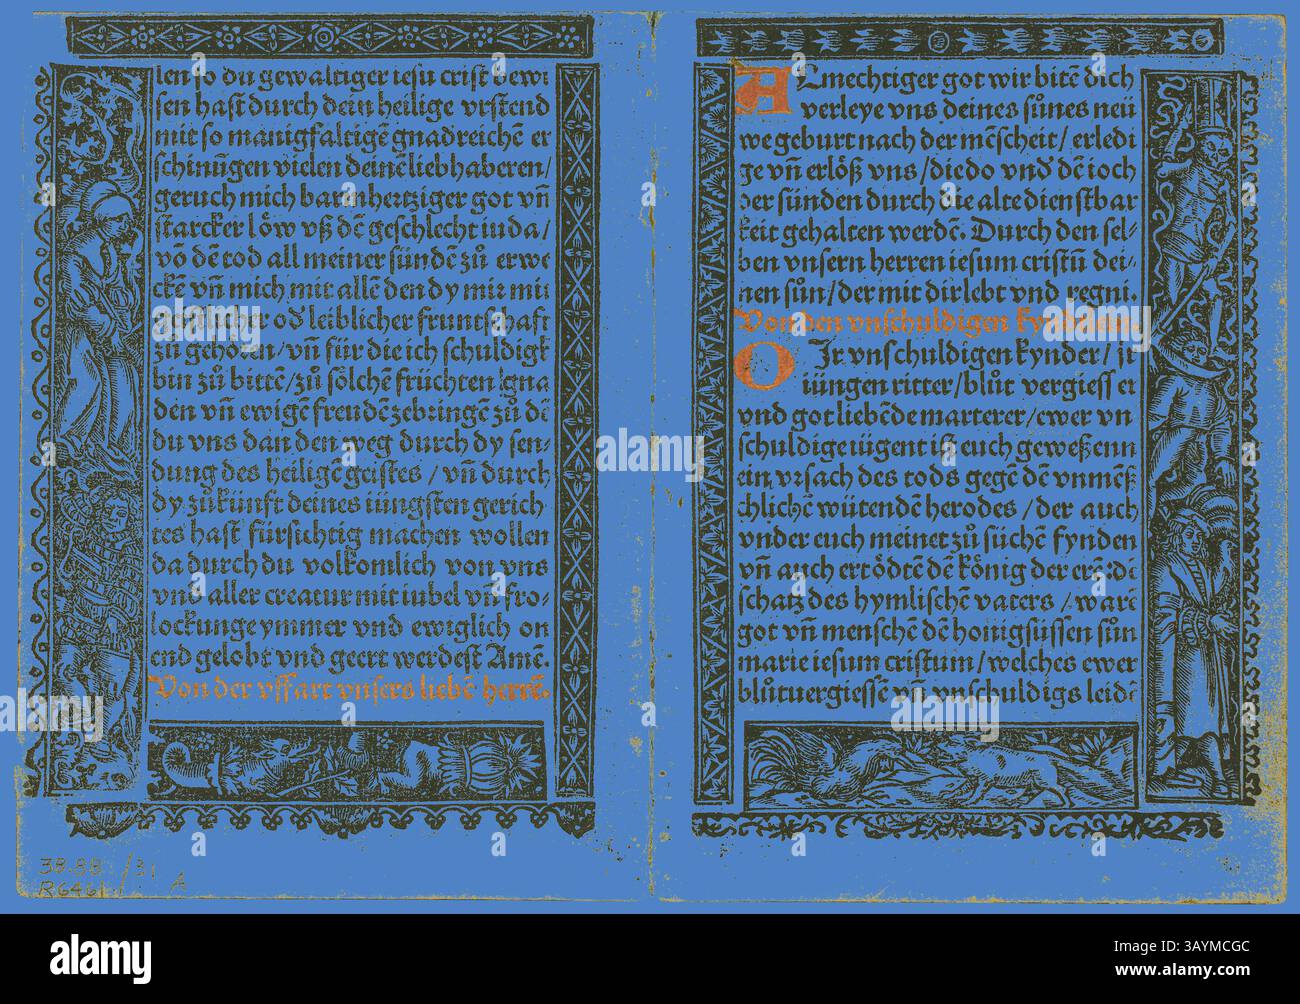 len so du gewaltiger iesu crist bewi
sen hast durch dein heilige vrstend
mit so manigfaltigē gnadreichē er
schinūgen vielen deinē liebhaberen/
geruch mich barmhertziger got vn̄
starcker löw vß dē geschlecht iuda/
vō dē tod all meiner sündē zů erwe
ckē vn̄ mich mit allē den dy mir mit
geistlicher od leiblicher fruntschaft
zů gehören/vn̄ für die ich schuldigk
bin zů bittē/zů sölchē früchten gna
den vn̄ ewigē freudē zebringē zů dē
du vns dan den weg durch dy sen-
dung des heiligē geistes / vn̄ durch
dy zůkünft deines iüngsten gerich
tes hast fürsichtig machen wollen
da durch du volkomlich von vns
vnd aller creatur mit iubel vn̄ fro-
lockunge ymmer vnd ewiglich on
end gelobt vnd geert werdest Amē.
Von der vffart vnsers liebē herrē.
38.88 /31 A
R6461
ALmechtiger got wir bitē dich
verleye vns deines sůnes neü
we geburt nach der mēscheit/erledi
ge vn̄ erlöß vns /die do vnd dē ioch
der sünden durch die alte dienstbar
keit gehalten werdē. Durch den sel-
ben vnsern herren iesum cristū dei-
nen sůn/der mit dir lebt vnd regni.
Von den vnschuldigen kyndlein.
OIr vnschuldigen kynder/ ir
iüngen ritter/blůt vergiess er
vnd got liebēde marterer/ewer vn
schuldige iügent iß euch geweßenn
ein vrsach des tods gegē dē vnmēß
chlichē wütendē herodes /der auch
vnder euch meinet zů süchē fynden
vn̄ auch ertödtē dē könig der erē:dē
schatz des hymlischē vaters /warē
got vn̄ menschē dē honigsüssen sůn
marie iesum cristum/welches ewer
blůtuergiessē vn̄ vnschuldigs leidē
alamy
Image ID: 3AYMCGC
www.alamy.com